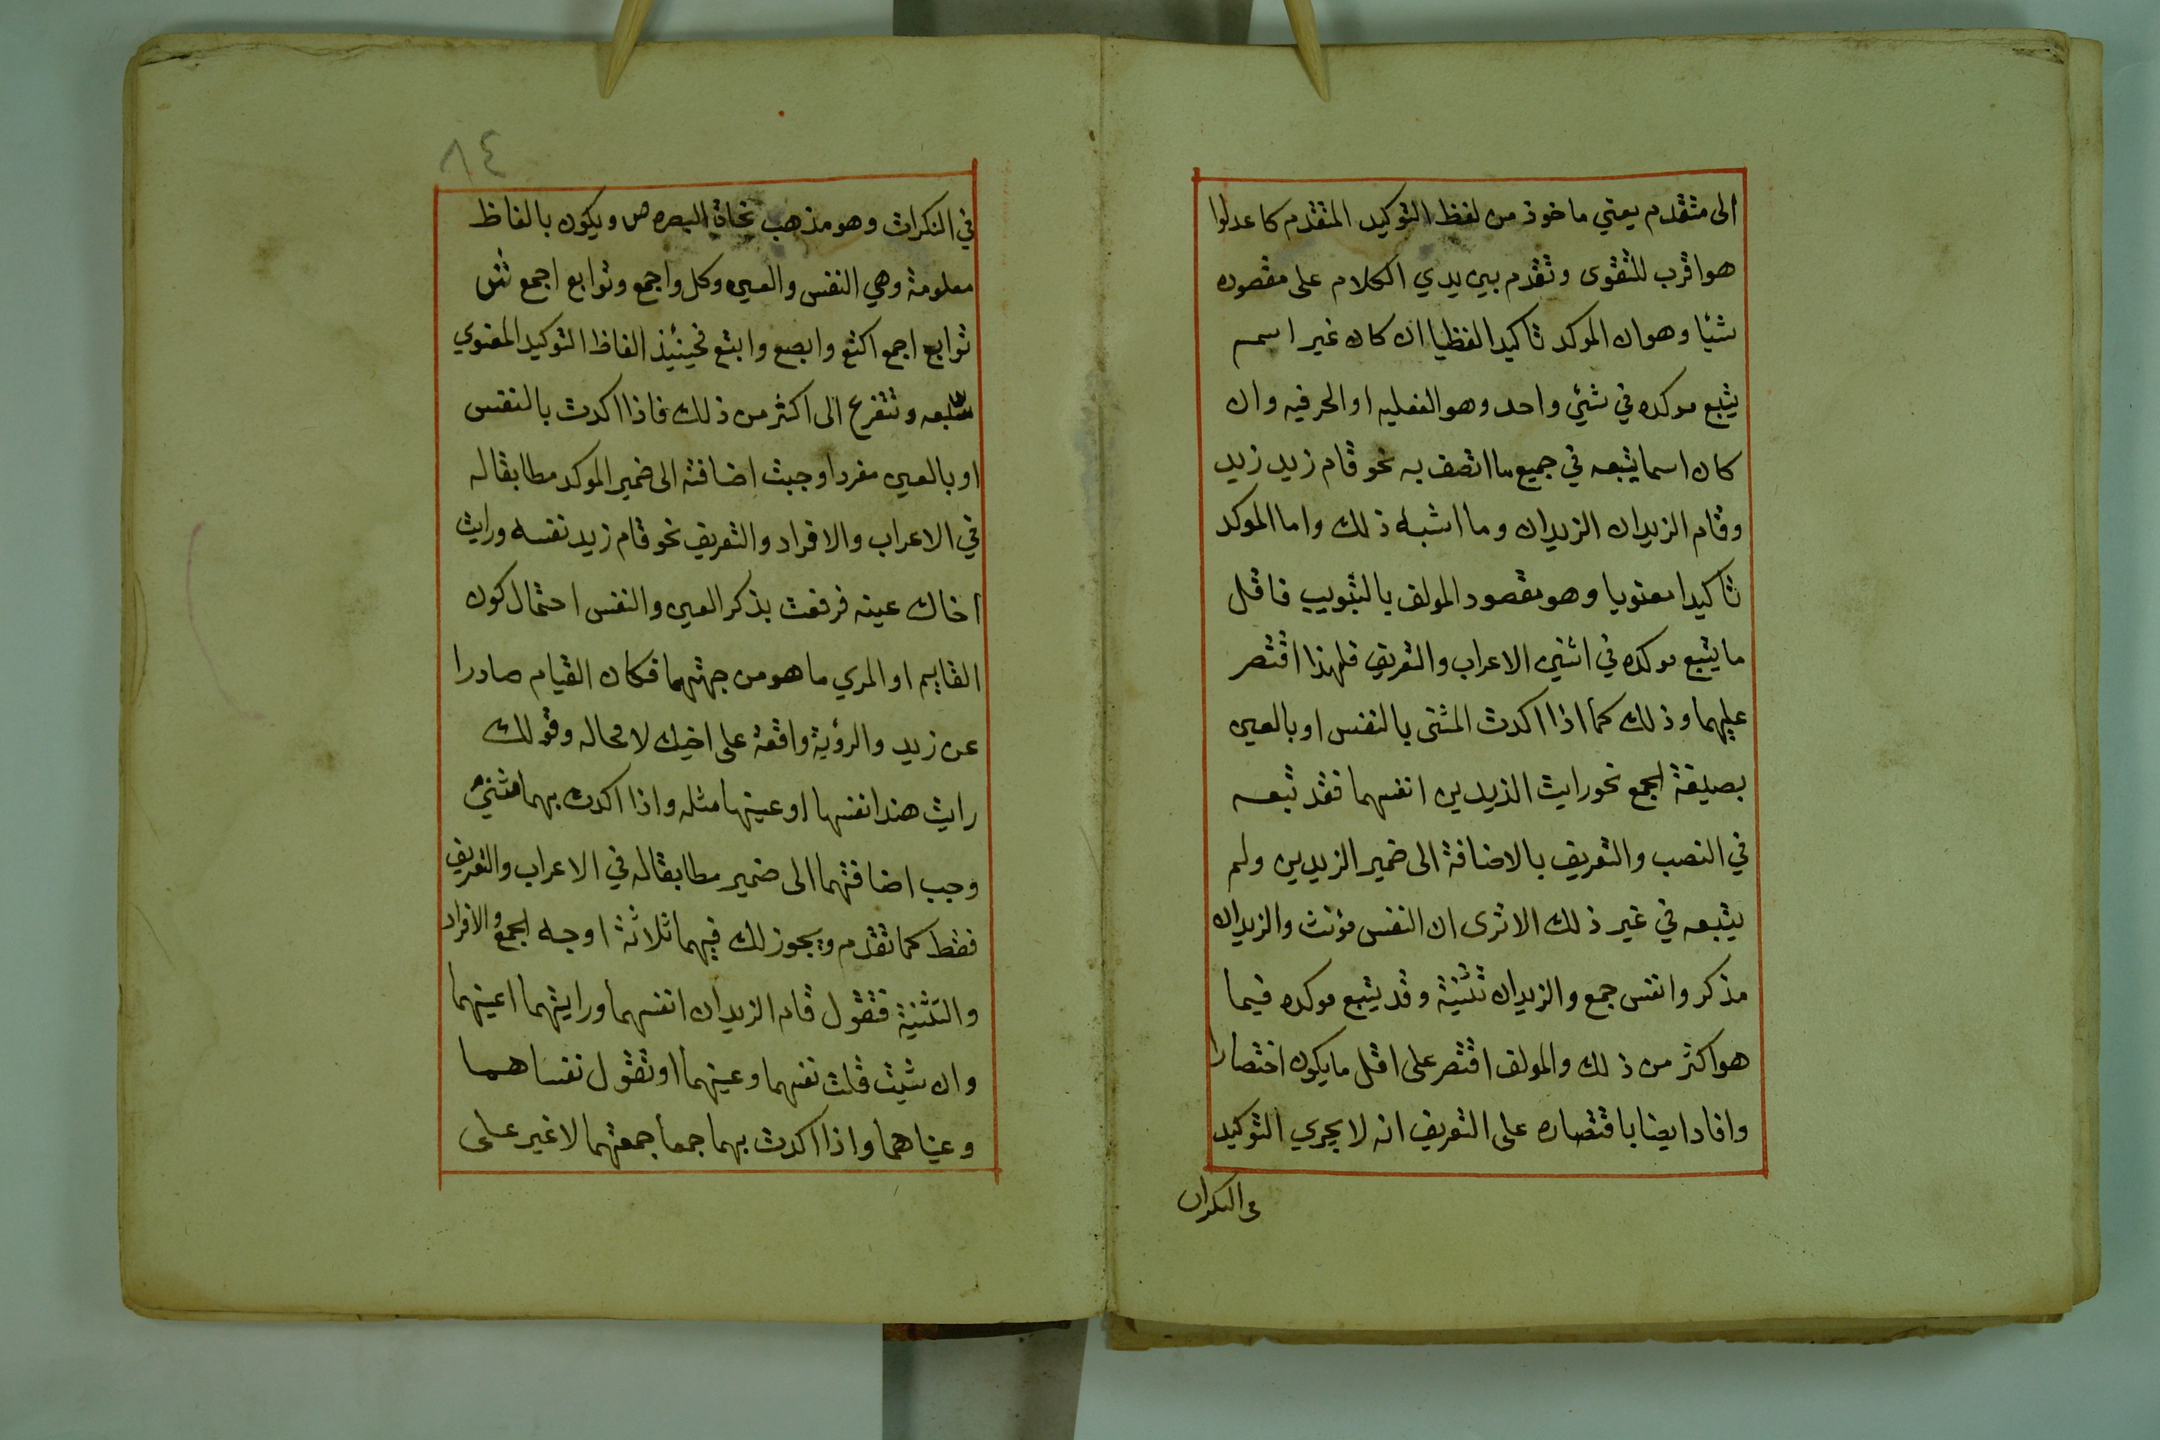 الى متقدم يعني ماخوذ من لفظ التوكيد المتقدم كاعدلوا
هو اقرب للتقوى وتقدم بين يدي الكلام على مقصوده
شيا وهو ان الموكد تاكيدا لفظيا ان كان غير اسم
يتبع موكده في شئي واحد وهو الفعليه او الحرفيه وان
كان اسما يتبعه في جميع ما اتصف به نحو قام زيد زيد
وقام الزيدان الزيدان وما اشبه ذلك واما الموكد
تاكيدا معنويا وهو مقصود المولف بالتبويب فاقل
ما يتبع موكده في اثنين الاعراب والتعريف فلهذا اقتصر
عليهما وذلك كما اذا اكدت المثنى بالنفس او بالعين
بصيغة الجمع نحو رايت الزيدين انفسهما فقد تبعه
في النصب والتعريف بالاضافة الى ضمير الزيدين ولم
يتبعه في غير ذلك الا ترى ان النفس مؤنث والزيدان
مذكر وانفس جمع والزيدان تثنية وقد يتبع موكده فيما
هو اكثر من ذلك والمولف اقتصر على اقل ما يكون اختصارا
وافاد ايضا باقتصاره على التعريف انه لا يجري التوكيد
في النكرات
٨٤
في النكرات وهو مذهب نحاة البصره ص ويكون بالفاظ
معلومة وهي النفس والعين وكل واجمع وتوابع اجمع ش
توابع اجمع اكتع وابصع وابتع فحينئذ الفاظ التوكيد المعنوي
سبعه وتتفرع الى اكثر من ذلك فاذا اكدت بالنفس
او بالعين مفردا وجبت اضافته الى ضمير الموكد مطابقا له
في الاعراب والافراد والتعريف نحو قام زيد نفسه ورايت
اخاك عينه فرفعت بذكر العين والنفس احتمال كون
القايم او المري ما هو من جهتهما فكان القيام صادرا
عن زيد والرؤية واقعة على اخيك لا محاله وقولك
رايت هندا نفسها او عينها مثله واذا اكدت بهما مثنى
وجب اضافتهما الى ضمير مطابقا له في الاعراب والتعريف
فقط كما تقدم ويجوز لك فيهما ثلاثة اوجه الجمع والافراد
والتثنية فتقول قام الزيدان انفسهما ورايتهما اعينهما
وان شيت قلت نفسهما وعينهما او تقول نفساهما
وعيناهما واذا اكدت بهما جمعا جمعتهما لا غير على